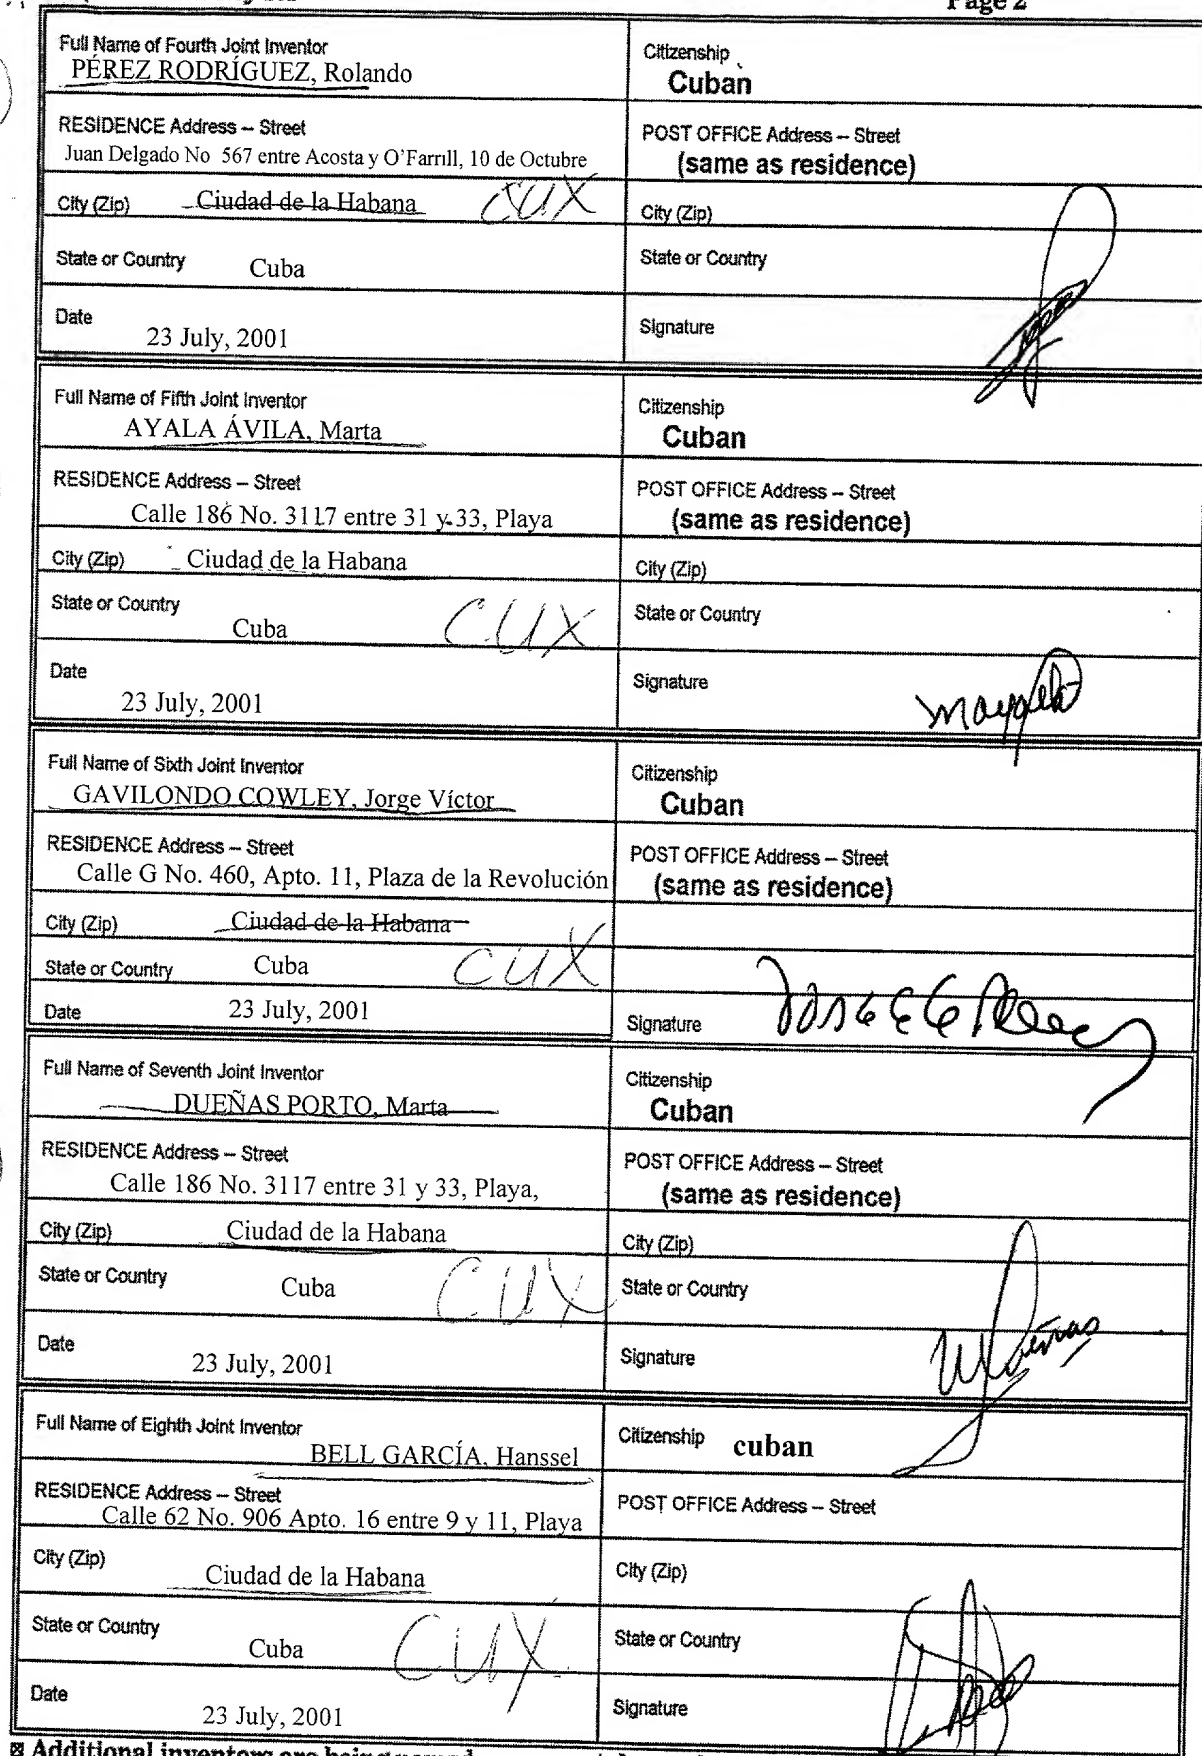 Page 2
Full Name of Fourth Joint Inventor
PÉREZ RODRÍGUEZ, Rolando
Citizenship
Cuban
RESIDENCE Address – Street
Juan Delgado No 567 entre Acosta y O'Farrill, 10 de Octubre
POST OFFICE Address – Street
(same as residence)
City (Zip) Ciudad de la Habana CUX
City (Zip)
State or Country Cuba
State or Country
Date
23 July, 2001
Signature
Full Name of Fifth Joint Inventor
AYALA ÁVILA, Marta
Citizenship
Cuban
RESIDENCE Address – Street
Calle 186 No. 3117 entre 31 y 33, Playa
POST OFFICE Address – Street
(same as residence)
City (Zip) Ciudad de la Habana
City (Zip)
State or Country
Cuba CUX
State or Country
Date
23 July, 2001
Signature
Full Name of Sixth Joint Inventor
GAVILONDO COWLEY, Jorge Víctor
Citizenship
Cuban
RESIDENCE Address – Street
Calle G No. 460, Apto. 11, Plaza de la Revolución
POST OFFICE Address – Street
(same as residence)
City (Zip) Ciudad de la Habana
State or Country Cuba CUX
Date 23 July, 2001
Signature
Full Name of Seventh Joint Inventor
DUEÑAS PORTO, Marta
Citizenship
Cuban
RESIDENCE Address – Street
Calle 186 No. 3117 entre 31 y 33, Playa,
POST OFFICE Address – Street
(same as residence)
City (Zip) Ciudad de la Habana
City (Zip)
State or Country Cuba CUX
State or Country
Date
23 July, 2001
Signature
Full Name of Eighth Joint Inventor
BELL GARCÍA, Hanssel
Citizenship cuban
RESIDENCE Address – Street
Calle 62 No. 906 Apto. 16 entre 9 y 11, Playa
POST OFFICE Address – Street
City (Zip)
Ciudad de la Habana
City (Zip)
State or Country
Cuba CUX
State or Country
Date
23 July, 2001
Signature
Additional inventors are being